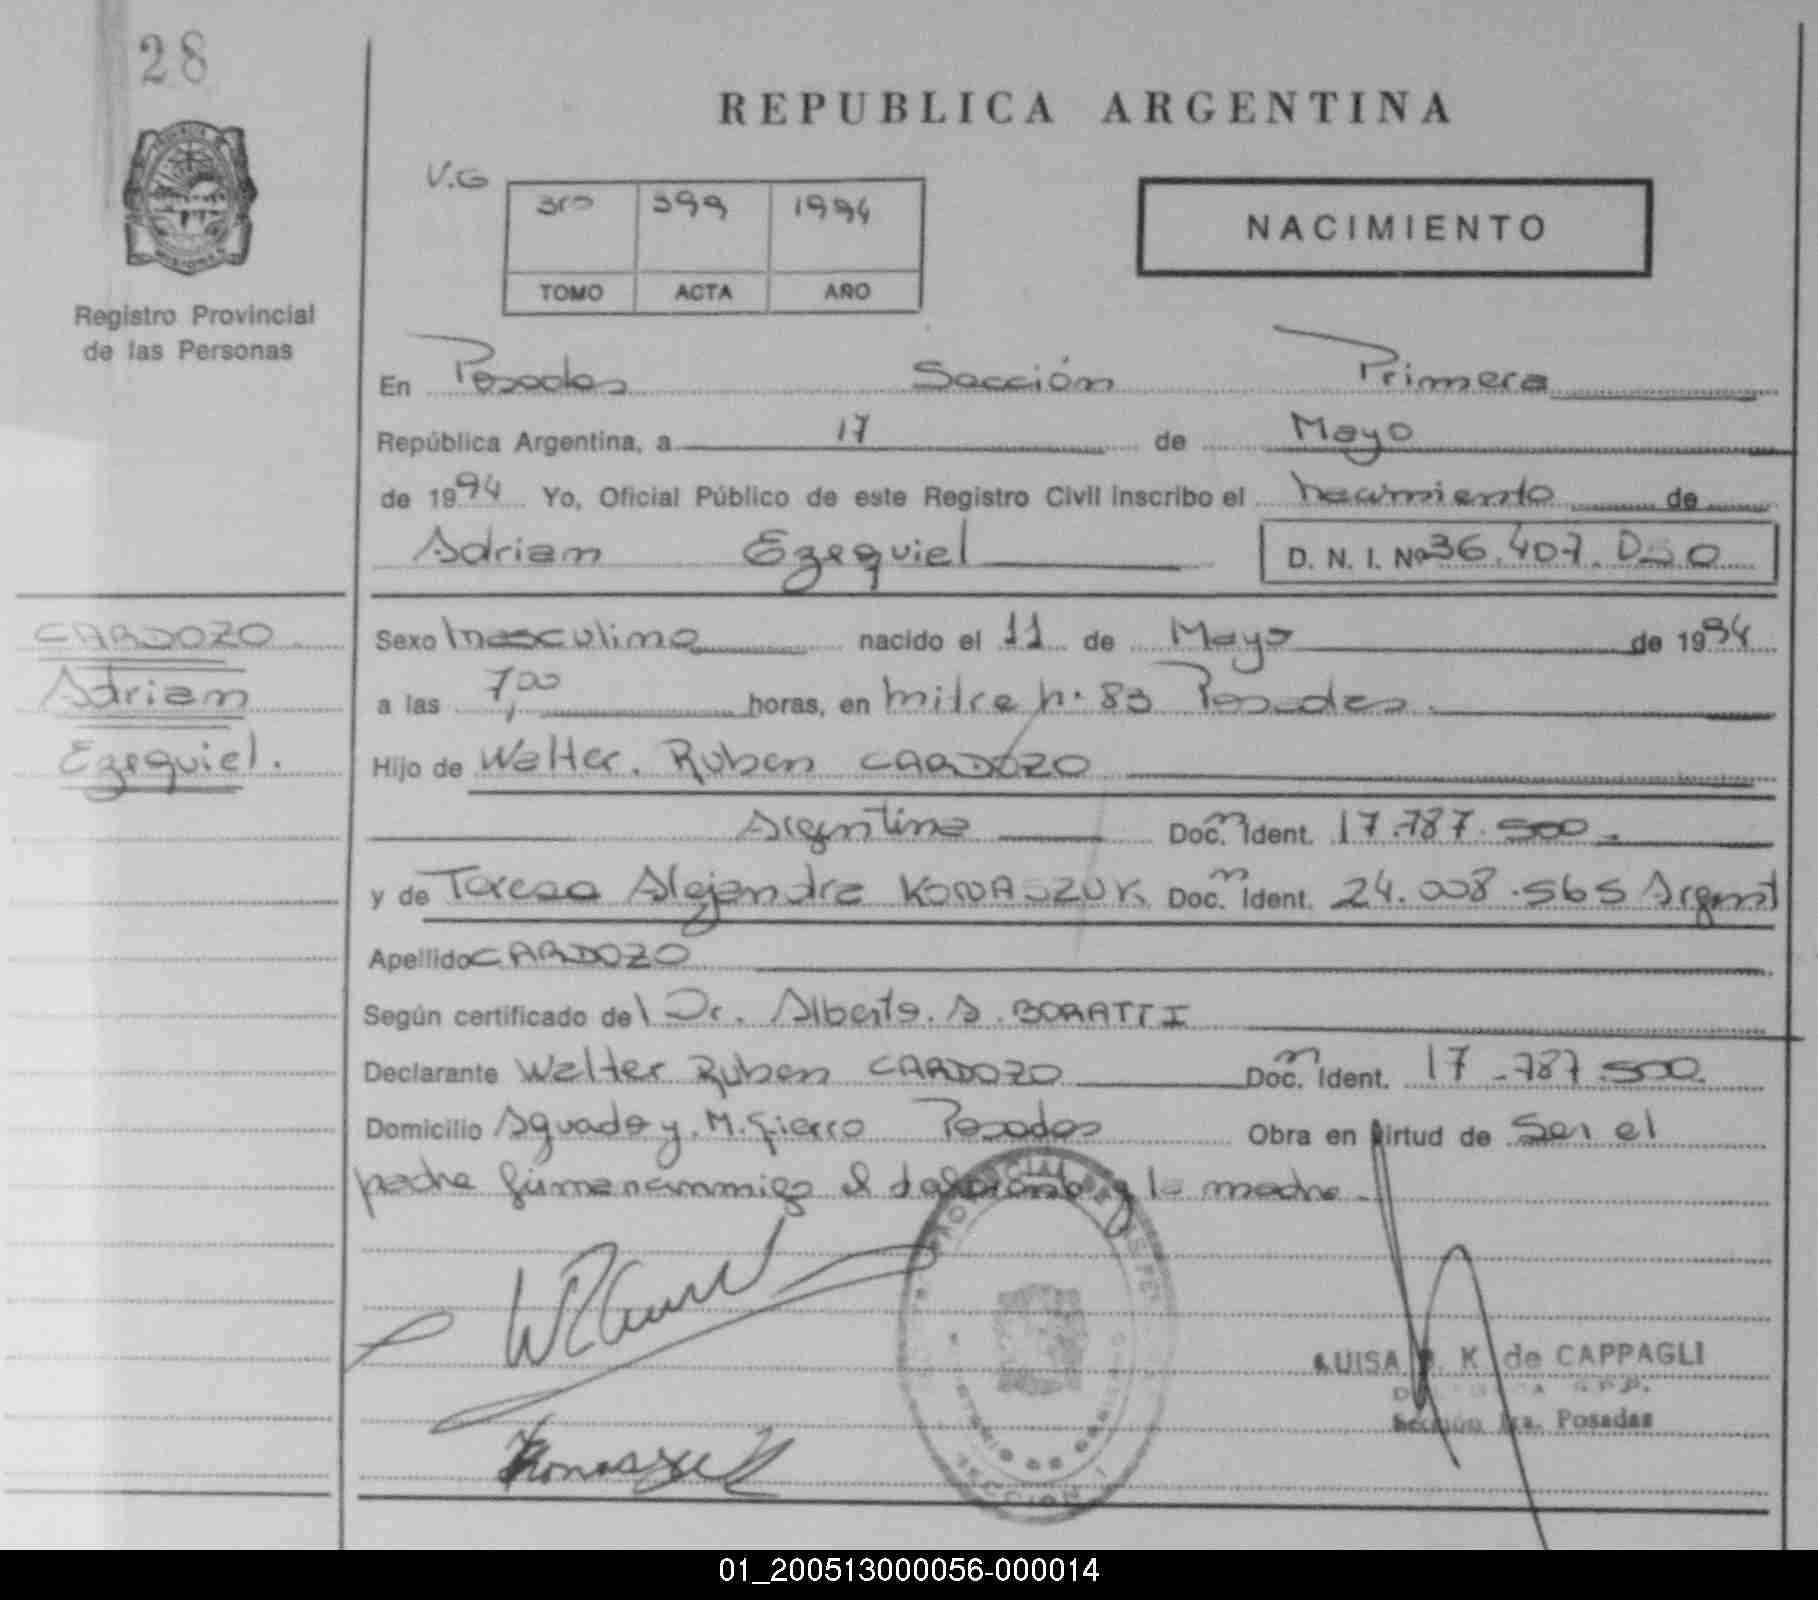 28
REPUBLICA ARGENTINA
V.G
3ro 399 1994
TOMO ACTA AÑO
NACIMIENTO
Registro Provincial
de las Personas
En Posadas Sección Primera
República Argentina, a 17 de Mayo
de 1994 Yo, Oficial Público de este Registro Civil inscribo el nacimiento de
Adrian Ezequiel D. N. I. Nº 36.407.
CARDOZO
Adrian
Ezequiel.
Sexo masculino nacido el 11 de Mayo de 1994
a las 7,00 horas, en mitre n. 83 Posadas.
Hijo de Walter Ruben CARDOZO
Argentina Doc. Ident. 17.787.500.
y de Teresa Alejandra KONASZUK Doc. Ident. 24.008.565 Argent
Apellido CARDOZO
Según certificado del Dr. Alberto. A. BORATTI
Declarante Walter Ruben CARDOZO Doc. Ident. 17.787.500.
Domicilio Aguado y M. Fierro Posadas Obra en virtud de ser el
padre firman conmigo el declarante y la madre.
LUISA K. de CAPPAGLI
Sección 1ra. Posadas
SECCION 1
01_200513000056-000014